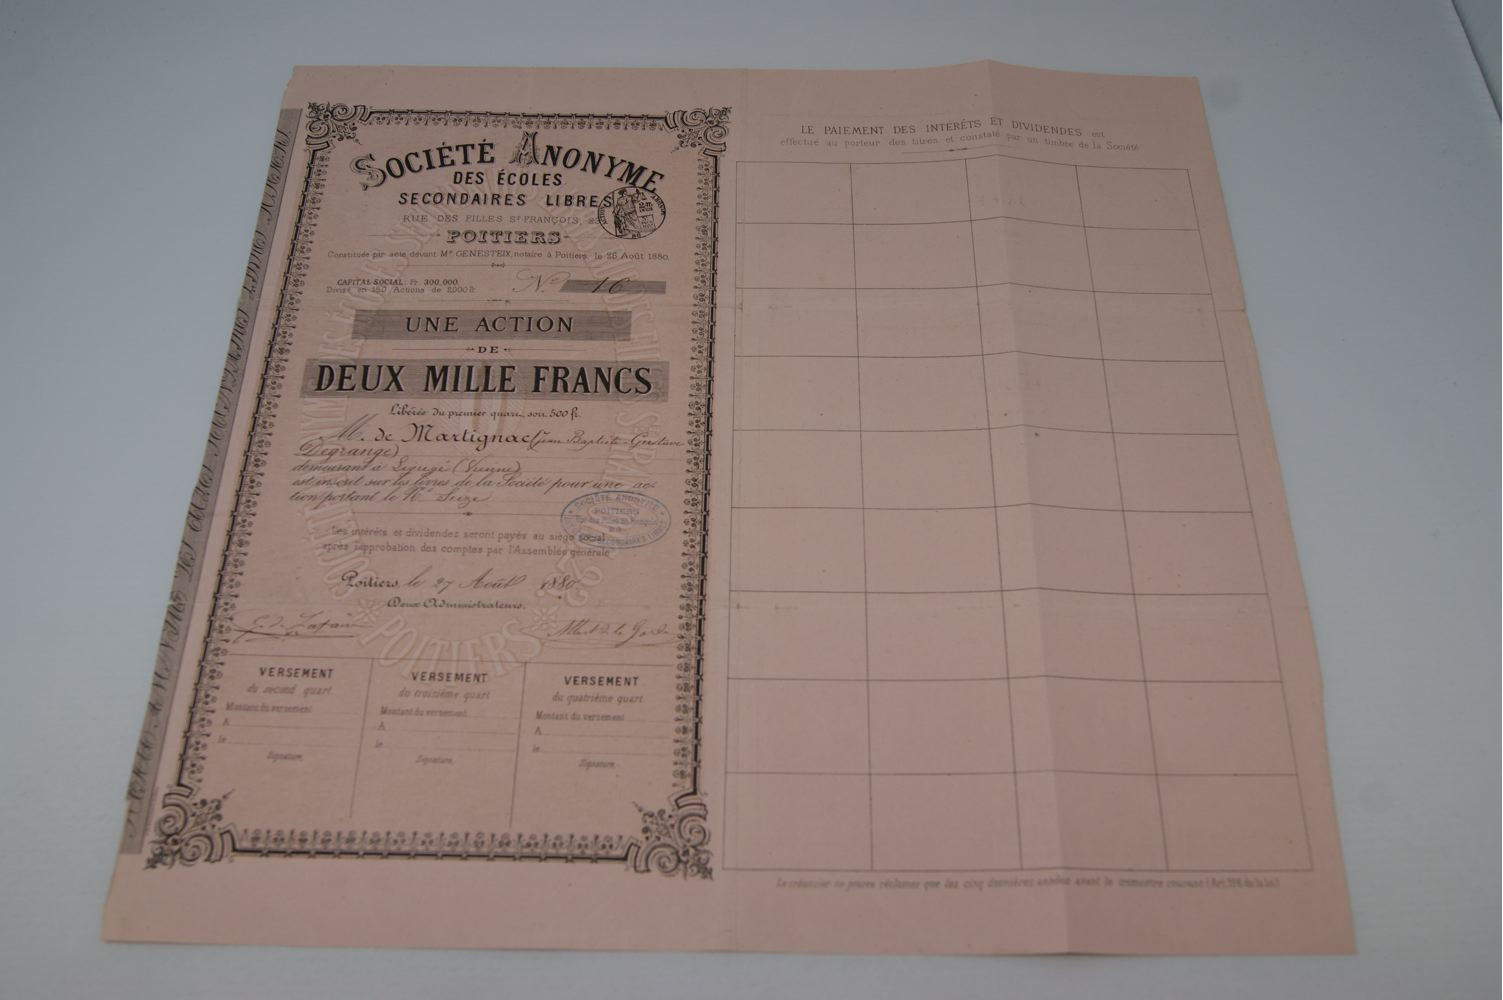 SOCIÉTÉ ANONYME
DES ÉCOLES
SECONDAIRES LIBRES
RUE DES FILLES St FRANÇOIS,
POITIERS
Constituée par acte devant Me GENESTEIX, notaire à Poitiers, le 25 Août 1880.
CAPITAL SOCIAL: Fr. 300,000
Divisé en 150 Actions de 2000 fr.
No 16
UNE ACTION
DE
DEUX MILLE FRANCS
Libérée du premier quart, soit 500 fr.
M. de Martignac (Jean Baptiste-Gustave
Degrange)
demeurant à Ligugé (Vienne)
est inscrit sur les livres de la Société pour une ac-
tion portant le No Seize
SOCIÉTÉ ANONYME
POITIERS
Les intérêts et dividendes seront payés au siège social
après approbation des comptes par l'Assemblée générale
Poitiers, le 27 Août 1880
Deux Administrateurs.
POITIERS
VERSEMENT
du second quart
Montant du versement
A
le
Signature,
VERSEMENT
du troisième quart
Montant du versement
A
le
Signature,
VERSEMENT
du quatrième quart
Montant du versement
A
le
Signature.
LE PAIEMENT DES INTÉRÊTS ET DIVIDENDES est
effectué au porteur des titres et constaté par un timbre de la Société
Le créancier ne pourra réclamer que les cinq dernières années avant le trimestre courant (Art.